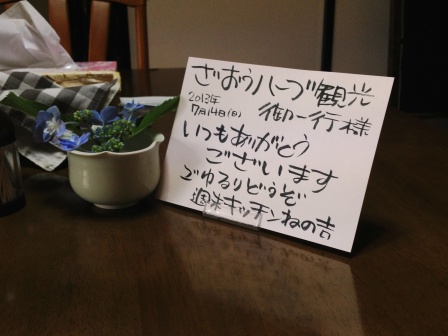 ざおうハーブ観光
2013年
7月14日(日)
御一行様
いつもありがとう
ございます
ごゆるりどうぞ
週末キッチンねの吉